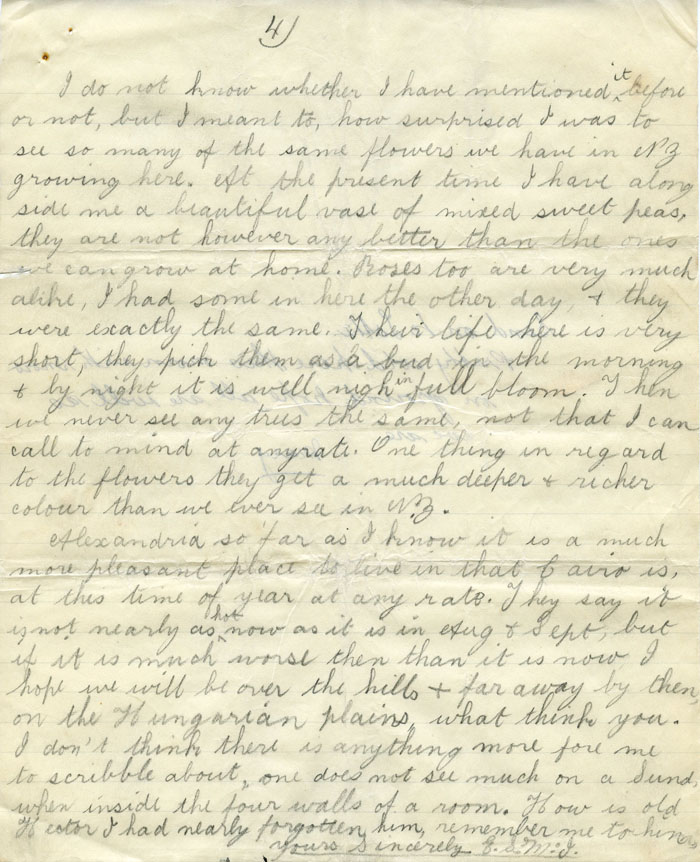 4)
I do not know whether I have mentioned it before
or not, but I meant to, how surprised I was to
see so many of the same flowers we have in NZ
growing here. At the present time I have along
side me a beautiful vase of mixed sweet peas,
they are not however any better than the ones
we can grow at home. Roses too are very much
alike, I had some in here the other day, & they
were exactly the same. Their life here is very
short, they pick them as a bud in the morning
& by night it is well nigh in full bloom. Then
we never see any trees the same, not that I can
call to mind at anyrate. One thing in regard
to the flowers they get a much deeper & richer
colour than we ever see in N.Z.
Alexandria so far as I know it is a much
more pleasant place to live in that Cairo is,
at this time of year at any rate. They say it
is not nearly as hot now as it is in Aug & Sept, but
if it is much worse then than it is now, I
hope we will be over the hills & far away by then,
on the Hungarian plains, what think you.
I don't think there is anything more fore me
to scribble about, one does not see much on a Sund
when inside the four walls of a room. How is old
Hector I had nearly forgotten him, remember me to him
Yours Sincerely